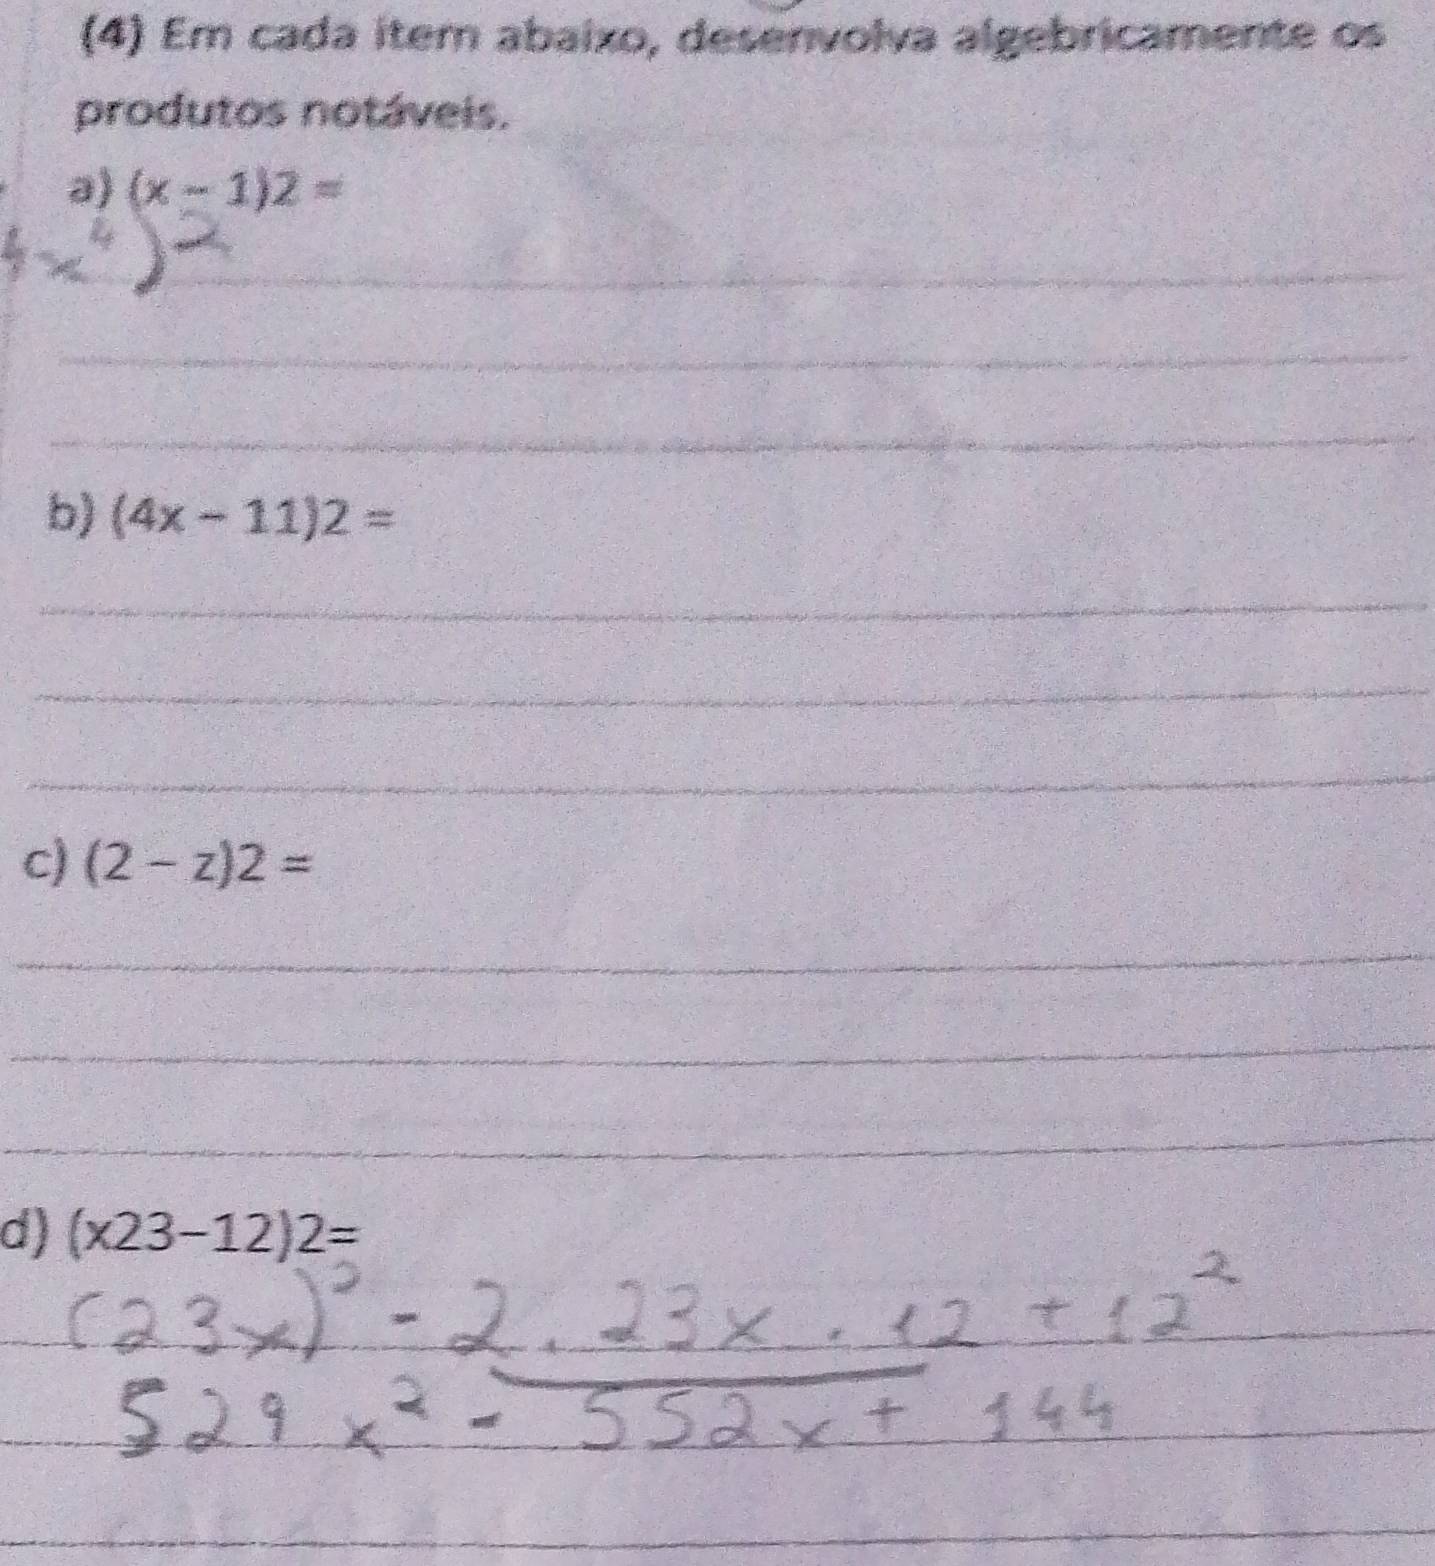 (4) Em cada item abaixo, desenvolva algebricamente os
produtos notáveis.
a) (x - 1)2 =
4x⁴)2
b) (4x - 11)2 =
c) (2 - z)2 =
d) (x23-12)2=
(23x)² - 2 . 23x . 12 + 12²
529x² - 552x + 144